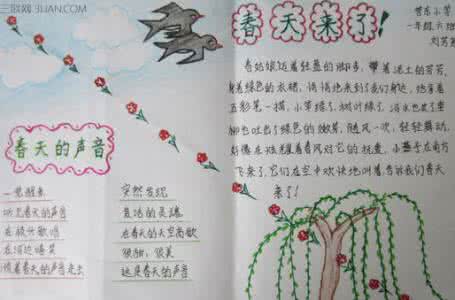 三联网 3LIAN.COM
春天来了!
营东小学
一年级六班
春姑娘迈着轻盈的脚步,带着泥土的芳芳,
身着绿色的衣裙,悄悄地来到了我们身边,她拿着
五彩笔一挥,小草绿了,树叶绿了,河水也
脚也吐出了绿色的嫩芽,随风一次,轻轻舞动,
好像在提醒着春风对它的抚查,小燕子在南方
飞来了,它们在空中欢快地叫着,告诉我们春天
来了!
春天的声音
一觉醒来
听见春天的声音
在枝头歌唱
在河边嬉笑
顺着春天的声音走去
突然发现
复活的灵魂
在春天的天空高歌
很甜,很美
这是春天的声音